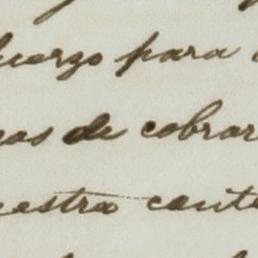 fuerzo para
cas de cobrar
uestra cante